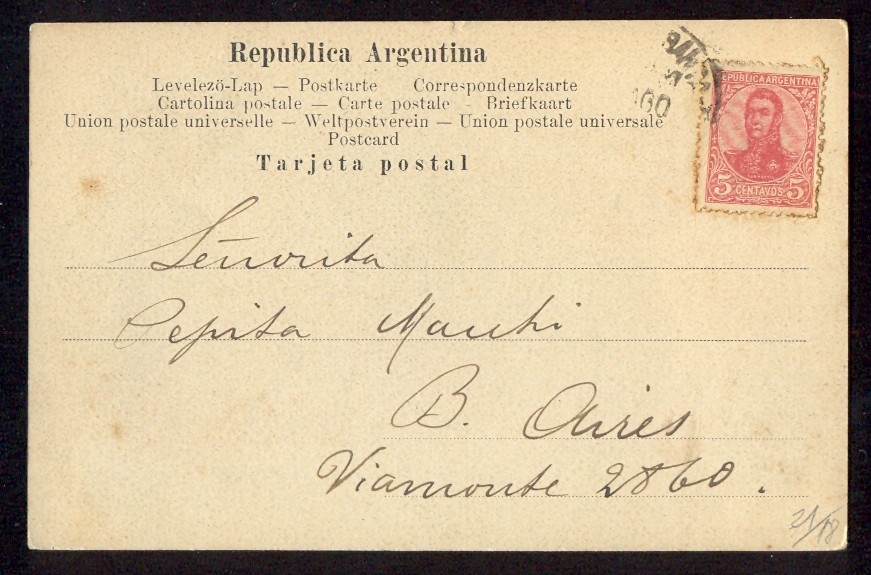 Republica Argentina
Levelező-Lap — Postkarte Correspondenzkarte
Cartolina postale — Carte postale - Briefkaart
Union postale universelle — Weltpostverein — Union postale universale
Postcard
Tarjeta postal
REPUBLICA ARGENTINA
5 CENTAVOS 5
Señorita
Pepita Mauchi
B. Aires
Viamonte 2860.